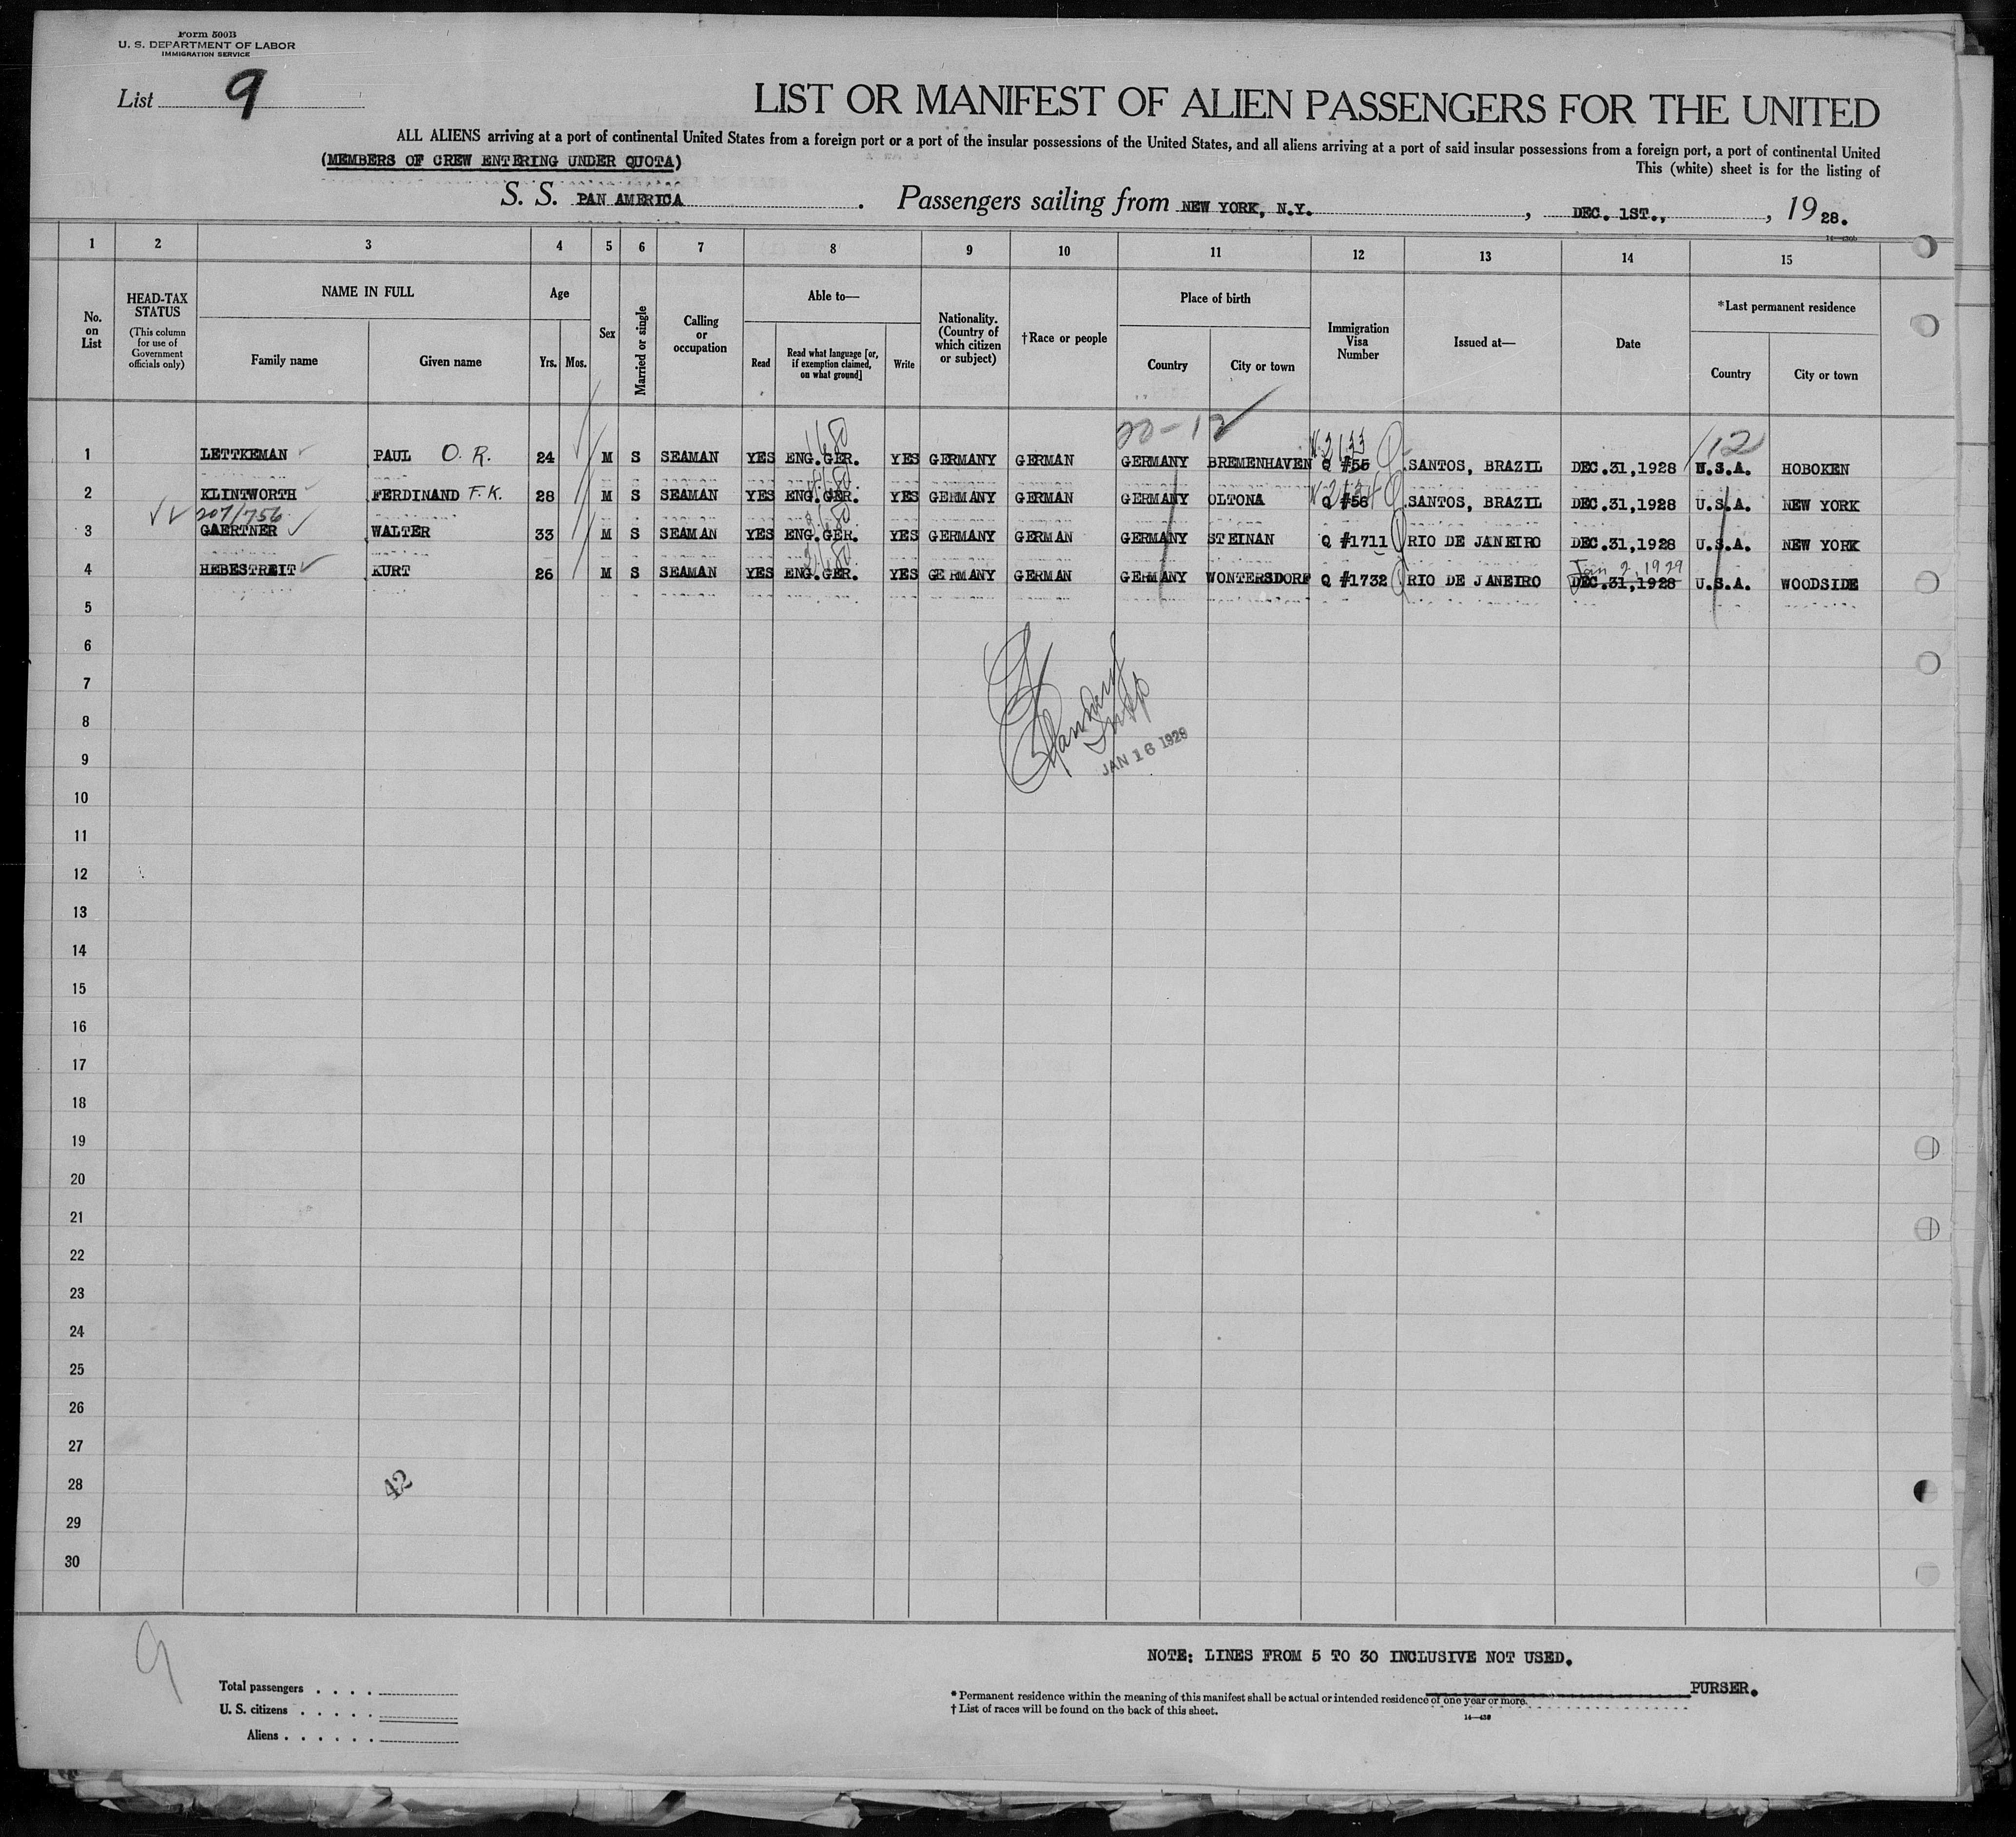 Form 500B
U. S. DEPARTMENT OF LABOR
IMMIGRATION SERVICE
List 9
LIST OR MANIFEST OF ALIEN PASSENGERS FOR THE UNITED
ALL ALIENS arriving at a port of continental United States from a foreign port or a port of the insular possessions of the United States, and all aliens arriving at a port of said insular possessions from a foreign port, a port of continental United
(MEMBERS OF CREW ENTERING UNDER QUOTA)
This (white) sheet is for the listing of
S. S. PAN AMERICA. Passengers sailing from NEW YORK, N.Y., DEC. 1ST., , 1928.
1 2 3 4 5 6 7 8 9 10 11 12 13 14 15
No. on List
HEAD-TAX STATUS
(This column for use of Government officials only)
NAME IN FULL
Family name Given name
Age
Yrs. Mos.
Sex
Married or single
Calling or occupation
Able to—
Read Read what language [or, if exemption claimed, on what ground] Write
Nationality. (Country of which citizen or subject)
†Race or people
Place of birth
Country City or town
Immigration Visa Number
Issued at—
Date
*Last permanent residence
Country City or town
12
1 LETTKEMAN PAUL O. R. 24 M S SEAMAN YES ENG.GER. YES GERMANY GERMAN GERMANY BREMENHAVEN Q #55 SANTOS, BRAZIL DEC.31,1928 U.S.A. HOBOKEN
2 KLINTWORTH FERDINAND F.K. 28 M S SEAMAN YES ENG.GER. YES GERMANY GERMAN GERMANY OLTONA Q #56 SANTOS, BRAZIL DEC.31,1928 U.S.A. NEW YORK
207/756
3 GAERTNER WALTER 33 M S SEAMAN YES ENG.GER. YES GERMANY GERMAN GERMANY STEINAN Q #1711 RIO DE JANEIRO DEC.31,1928 U.S.A. NEW YORK
Jan 2, 1929
4 HEBESTREIT KURT 26 M S SEAMAN YES ENG.GER. YES GERMANY GERMAN GERMANY WONTERSDORF Q #1732 RIO DE JANEIRO DEC.31,1928 U.S.A. WOODSIDE
5
6
7
8
JAN 16 1929
9
10
11
12
13
14
15
16
17
18
19
20
21
22
23
24
25
26
27
28 42
29
30
9
NOTE: LINES FROM 5 TO 30 INCLUSIVE NOT USED.
Total passengers
U. S. citizens
Aliens
PURSER.
* Permanent residence within the meaning of this manifest shall be actual or intended residence of one year or more.
† List of races will be found on the back of this sheet.